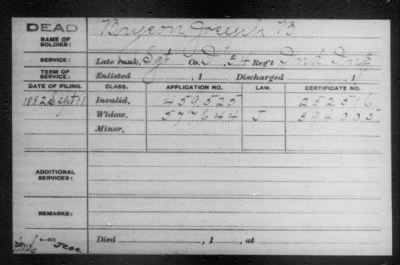 DEAD
NAME OF SOLDIER: Bryson B
SERVICE: Late rank, Sgt Co. D, 54 Reg't Ind. Inf
TERM OF SERVICE: Enlisted , 1 Discharged , 1
DATE OF FILING. CLASS. APPLICATION NO. LAW. CERTIFICATE NO.
1882 Sept 11 Invalid, 459,525 252516
Widow, 577,644 J 394335
Minor,
ADDITIONAL SERVICES:
REMARKS:
Died , 1 , at